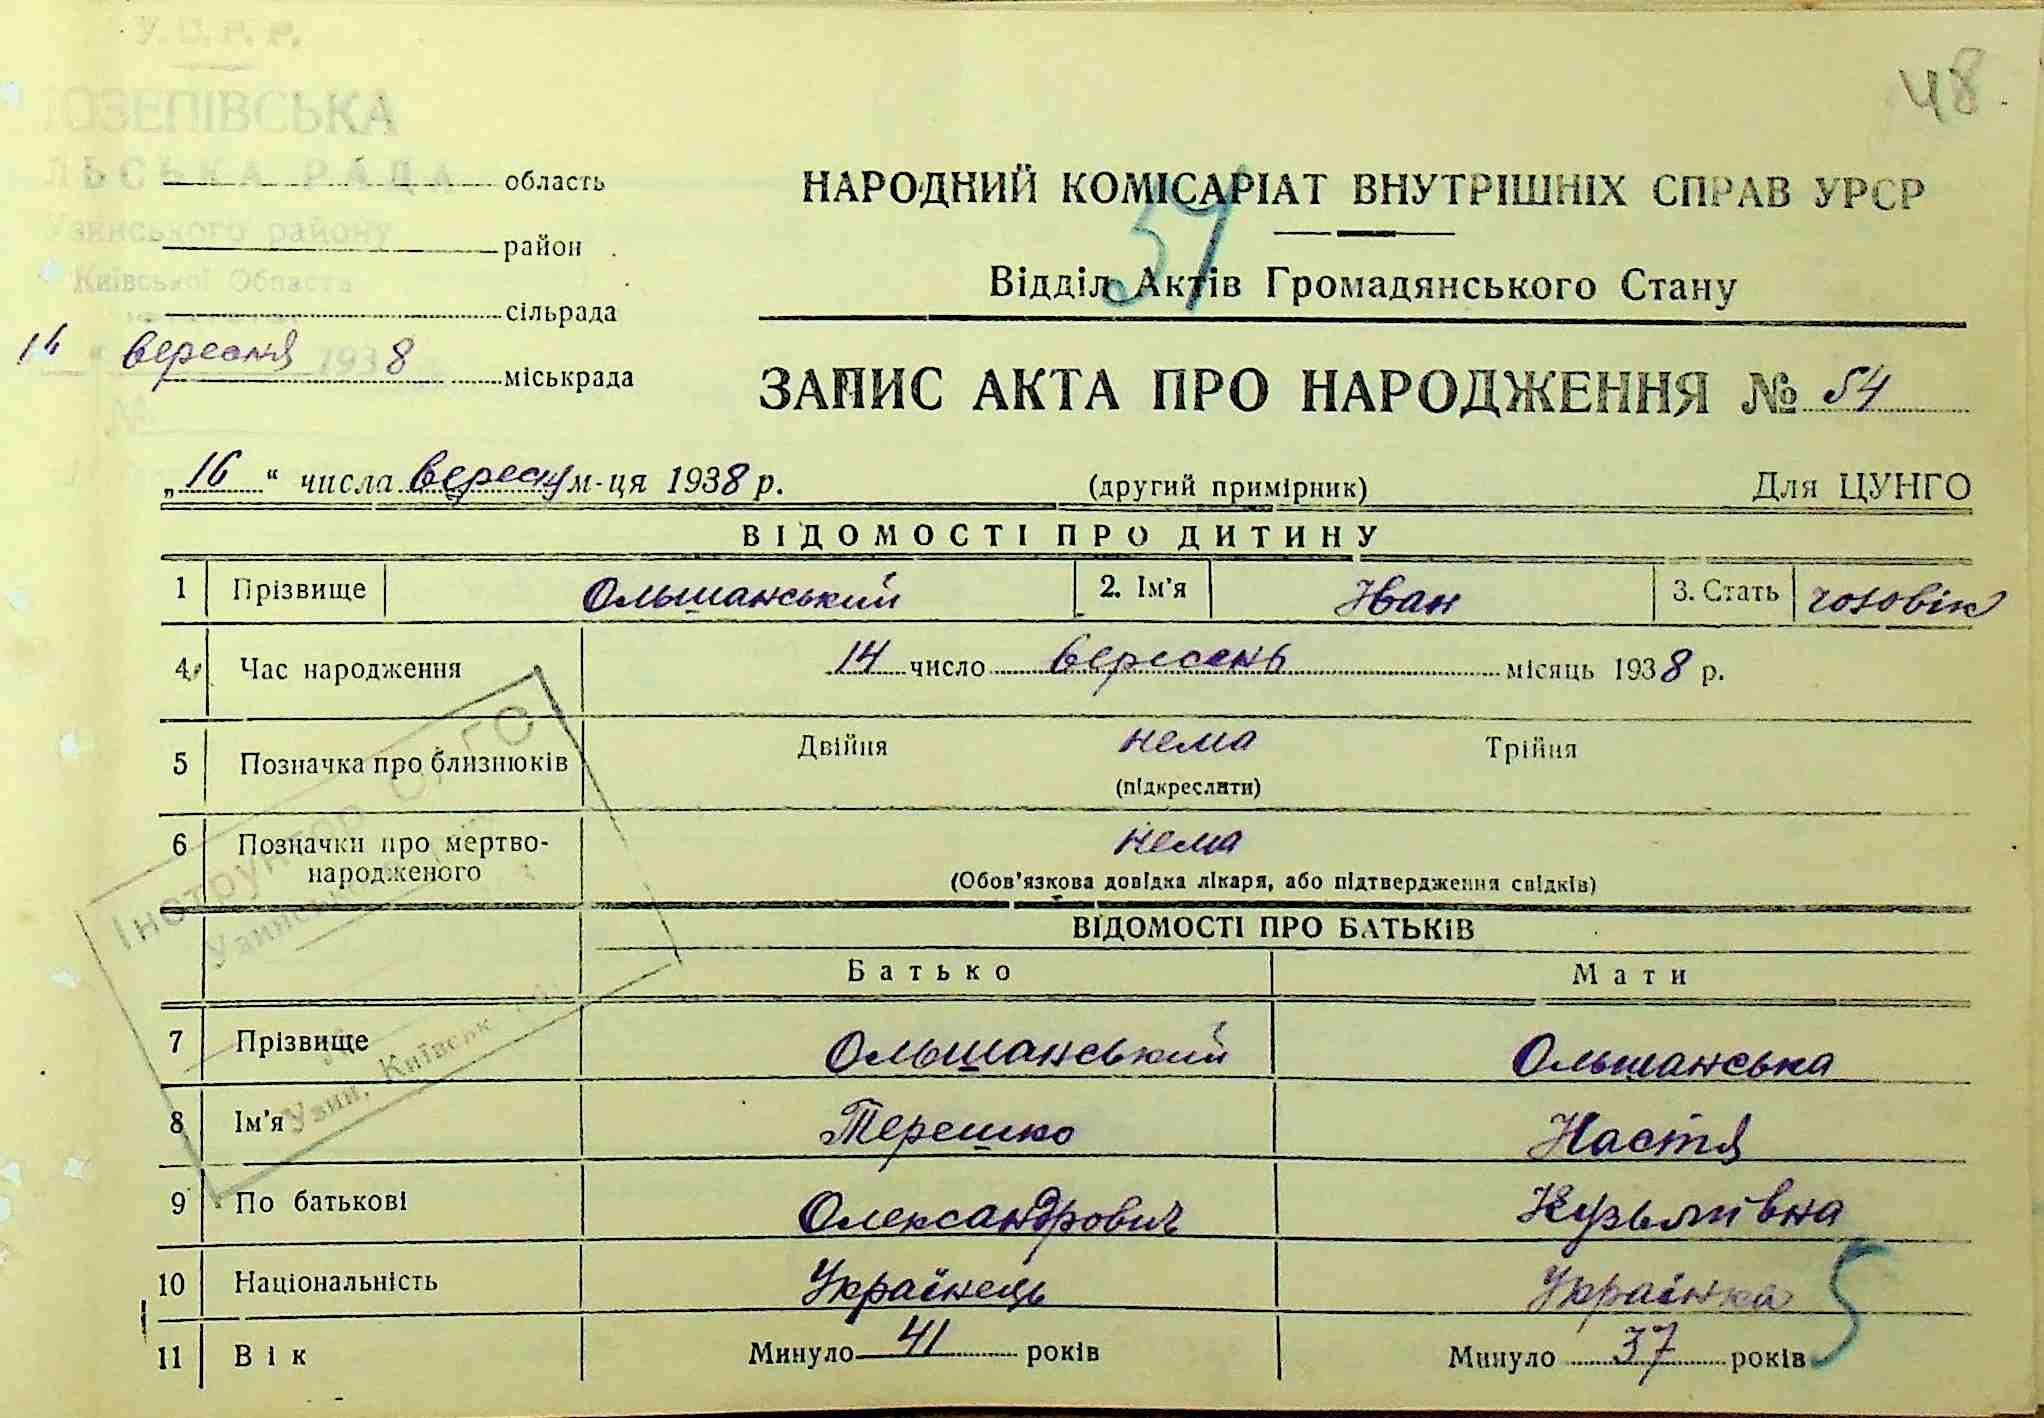 У. С. Р. Р.
48
ОЗЕПІВСЬКА
ЛЬСЬКА РАДА
область
НАРОДНИЙ КОМІСАРІАТ ВНУТРІШНІХ СПРАВ УРСР
Узинського району
район
Київської Області
Відділ Актів Громадянського Стану
сільрада
14 " вересня 1938
міськрада
№
ЗАПИС АКТА ПРО НАРОДЖЕННЯ № 54
„16“ числа вересня м-ця 1938 р.
(другий примірник)
Для ЦУНГО
ВІДОМОСТІ ПРО ДИТИНУ
1 Прізвище Ольшанський 2. Ім'я Іван 3. Стать чоловік
4 Час народження 14 число вересень місяць 1938 р.
5 Позначка про близнюків Двійня нема Трійня
(підкреслити)
6 Позначки про мертво-
народженого нема
(Обов'язкова довідка лікаря, або підтвердження свідків)
Інструктор
Узин, Київськ
ВІДОМОСТІ ПРО БАТЬКІВ
Батько Мати
7 Прізвище Ольшанський Ольшанська
8 Ім'я Терешко Настя
9 По батькові Олександрович Кузьмівна
10 Національність Українець Українка
5
11 Вік Минуло 41 років Минуло 37 років